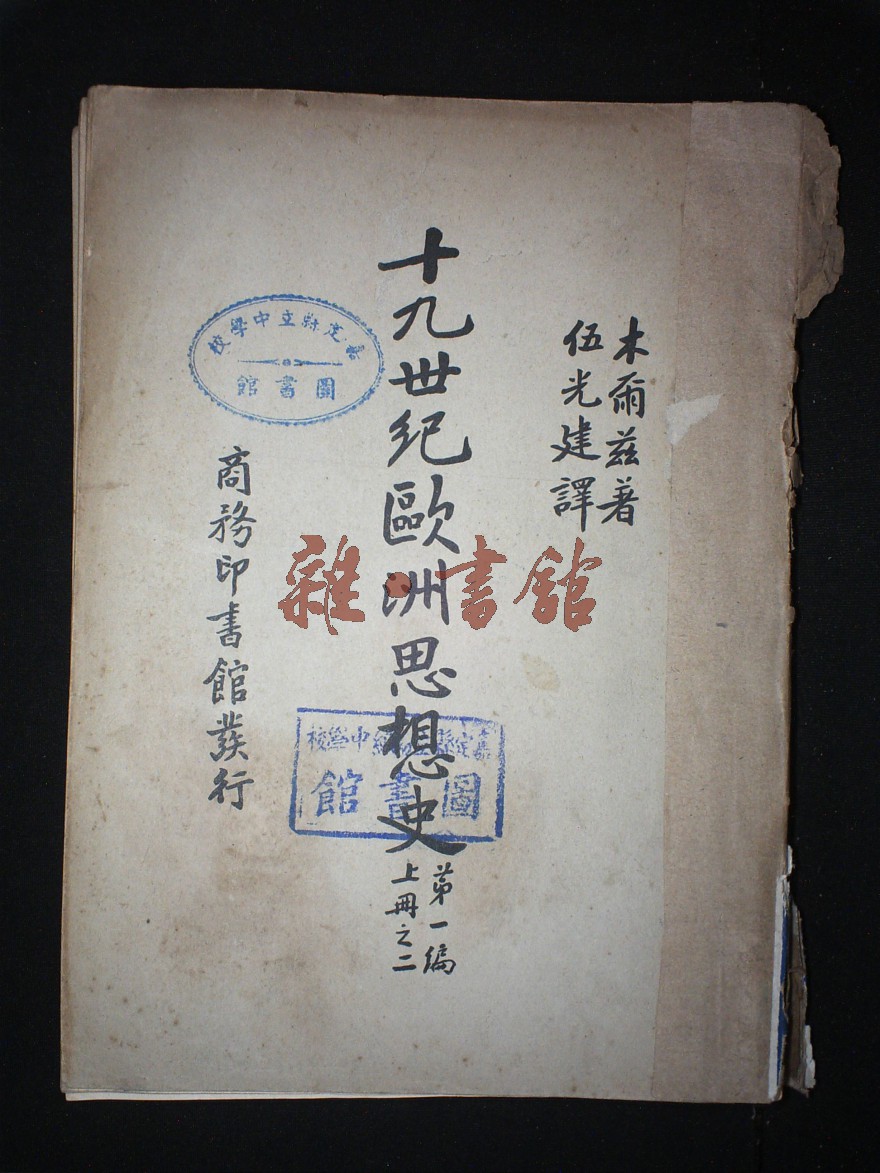 木爾茲著
伍光建譯
十九世紀歐洲思想史
第一編
上冊之二
商務印書館發行
嘉定縣立中學校
圖書館
雜·書館
嘉定縣立初級中學校
圖書館